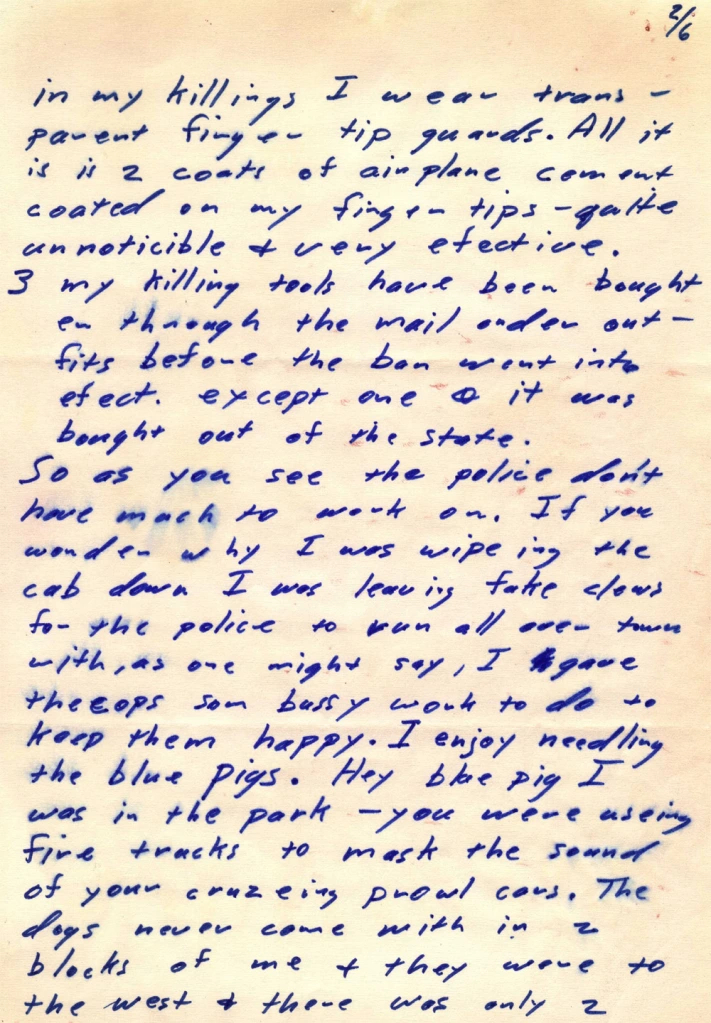 2/6
in my killings I wear trans -
parent finger tip guards. All it
is is 2 coats of airplane cement
coated on my finger tips - quite
unnoticible & very efective.
3 my killing tools have been bought
en through the mail order out-
fits before the ban went into
efect. except one & it was
bought out of the state.
So as you see the police don't
have much to work on. If you
wonder why I was wipeing the
cab down I was leaving fake clews
for the police to run all over town
with, as one might say, I gave
the cops som bussy work to do to
keep them happy. I enjoy needling
the blue pigs. Hey blue pig I
was in the park - you were useing
fire trucks to mask the sound
of your cruzeing prowl cars. The
dogs never came with in 2
blocks of me & they were to
the west & there was only 2